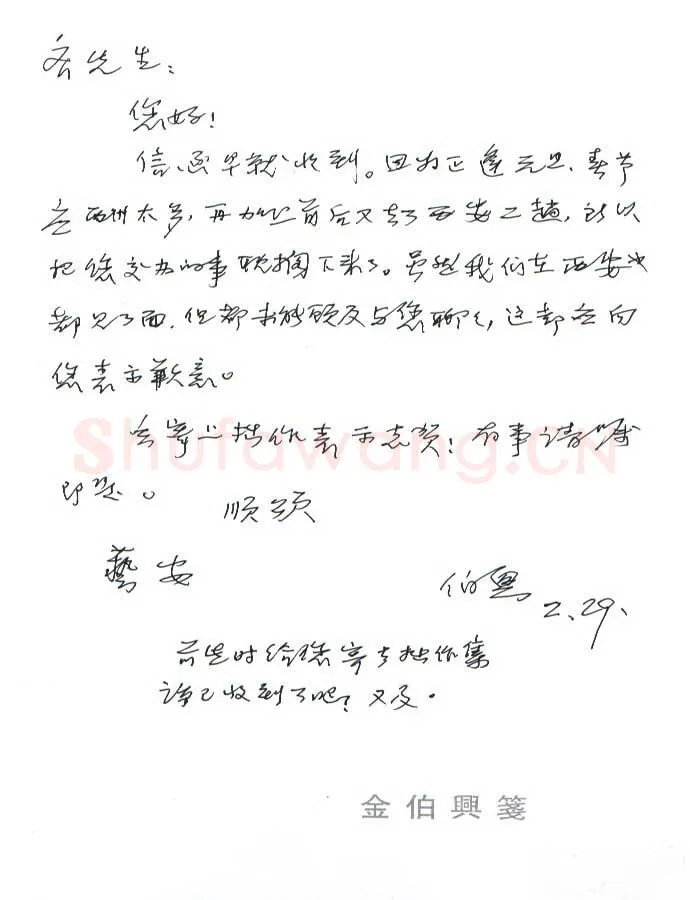 先生：
您好！
信函早就收到。因为正逢元旦、春节
应酬太多，再加上前后又去了西安二趟，所以
把您交办的事耽搁下来了。虽然我们在西安也
都见了面，但都未能顾及与您聊聊，这都应向
您表示歉意。
寄上拙作表示志贺！有事请嘱
即是。
顺颂
藝安
伯興
2.29.
前些时给您寄去拙作集
谅已收到了吧？又及。
金伯興箋
Shufawang.CN